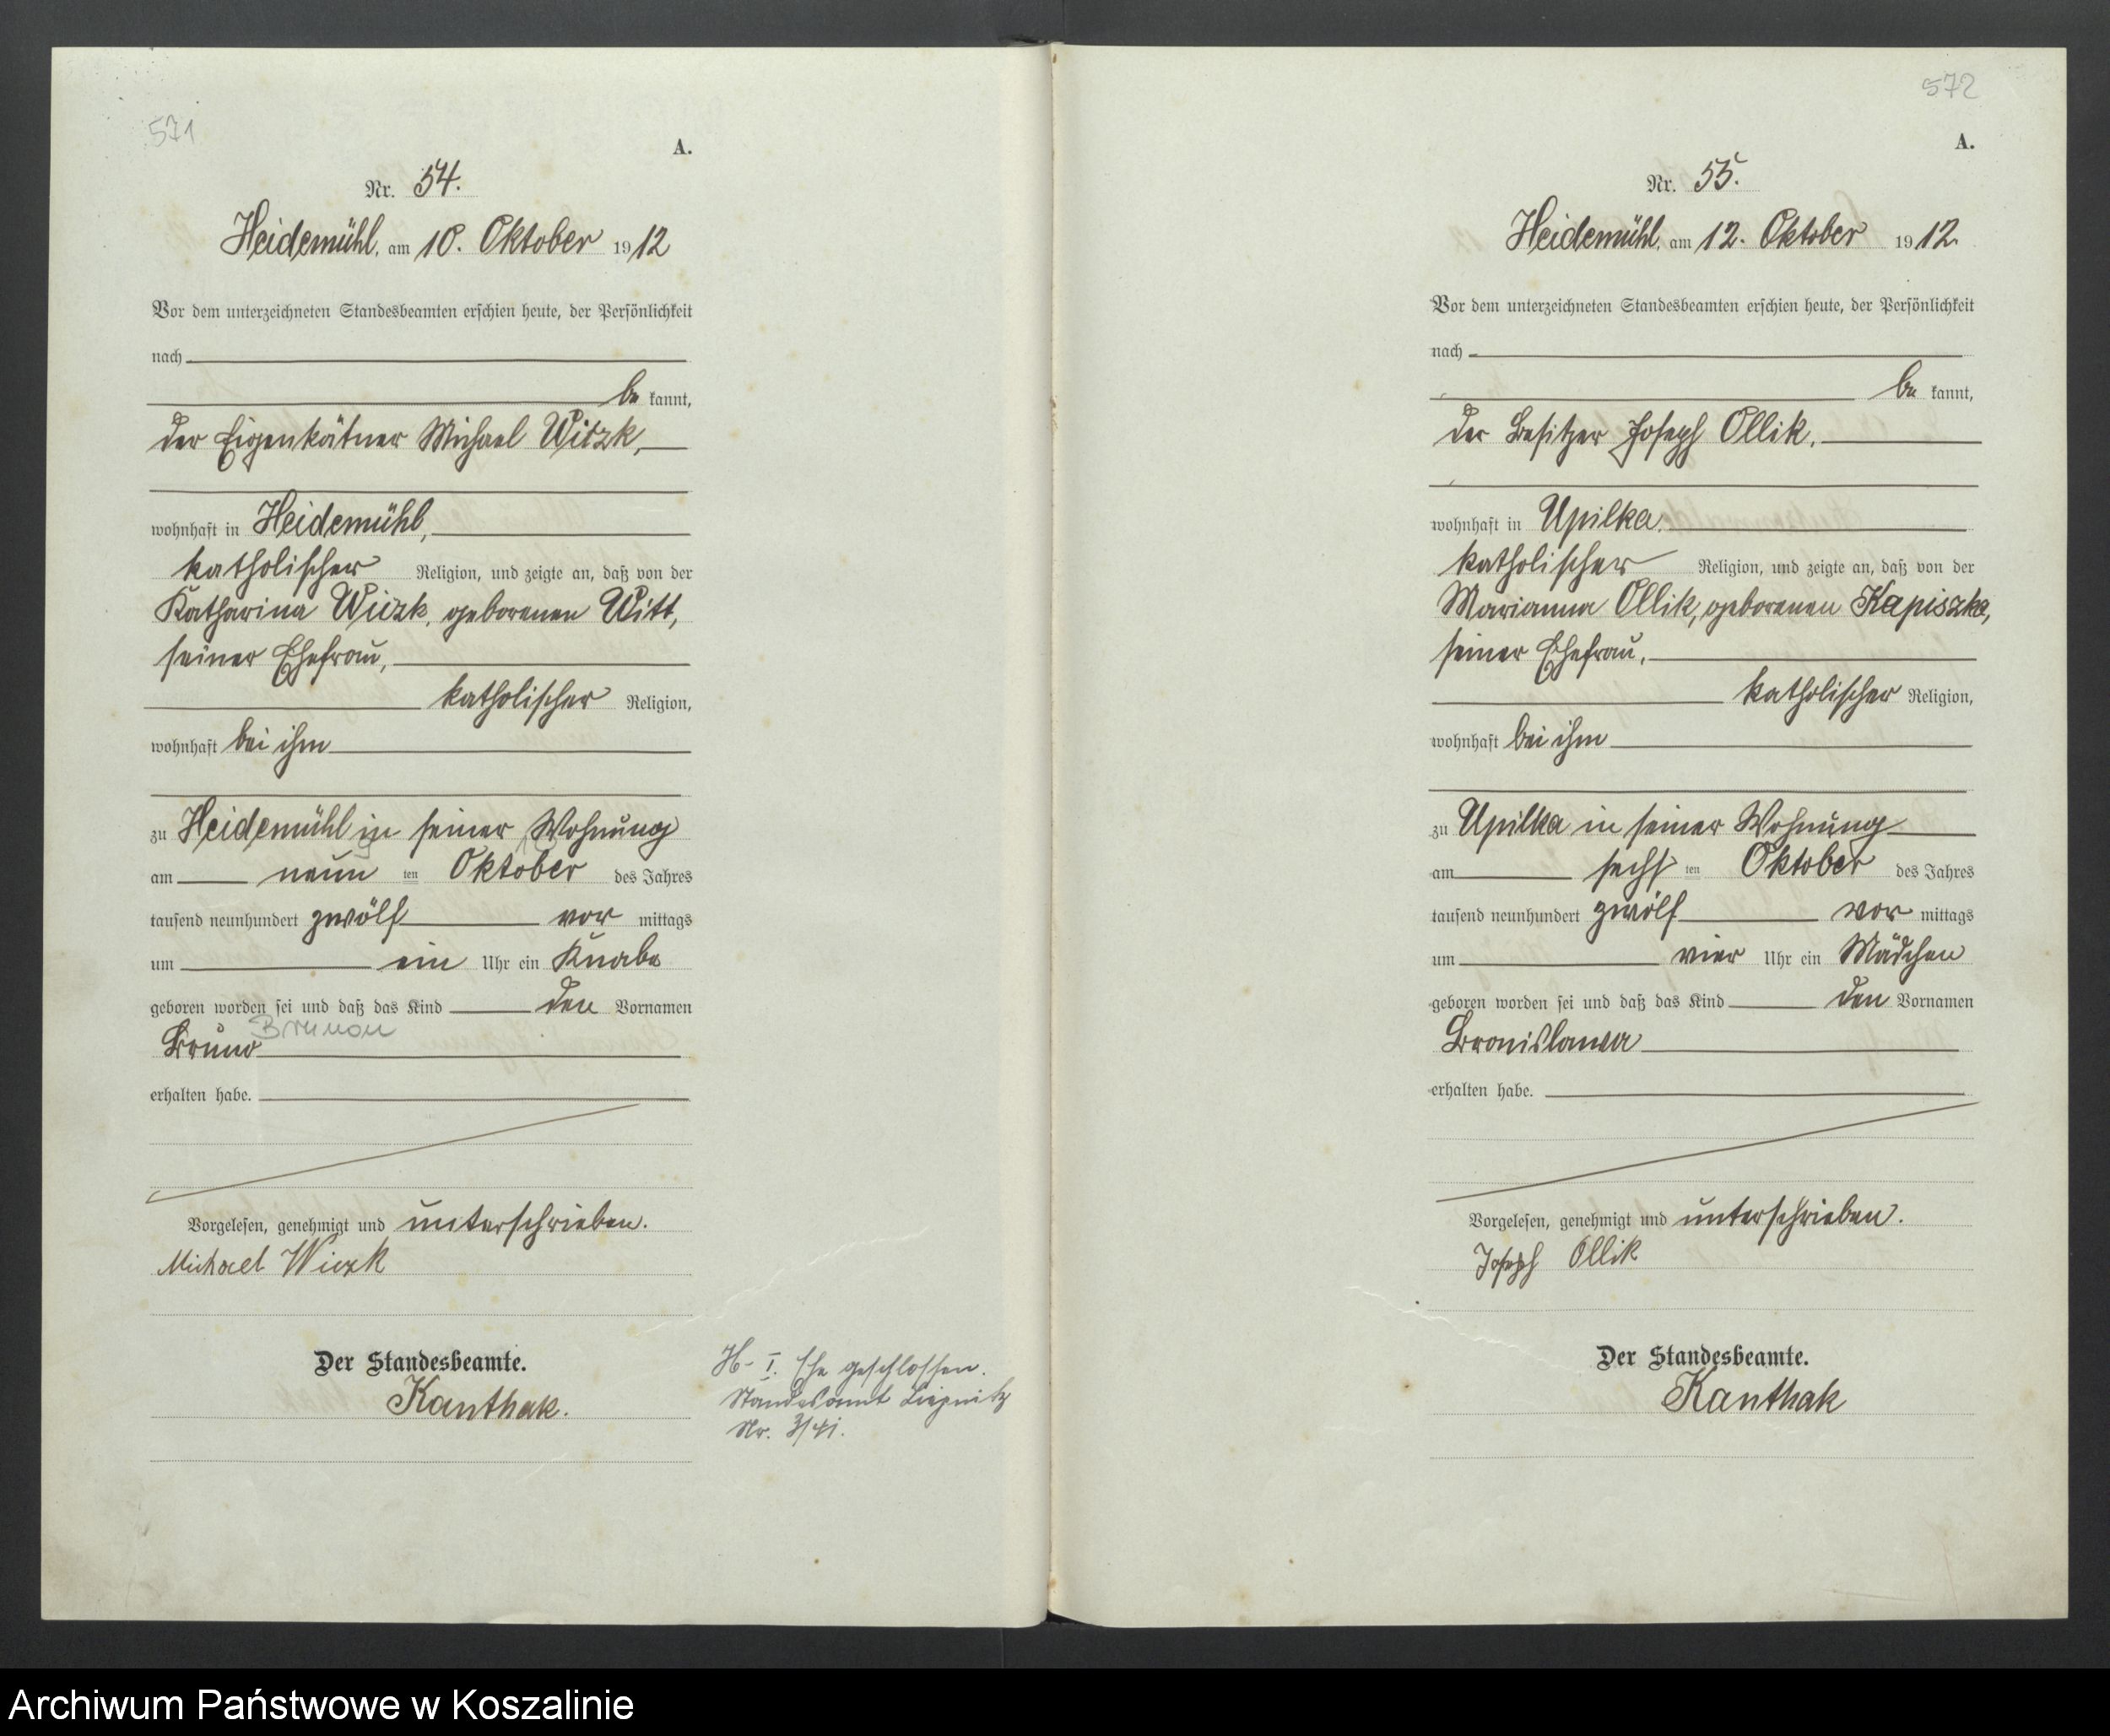 571
A.
Nr. 54.
Heidemühl, am 10. Oktober 1912
Vor dem unterzeichneten Standesbeamten erschien heute, der Persönlichkeit
nach
be kannt,
der Eigenkätner Michael Witzk,
wohnhaft in Heidemühl,
katholischer Religion, und zeigte an, daß von der
Katharina geborenen Witt,
seiner Ehefrau,
katholischer Religion,
wohnhaft bei ihm
zu Heidemühl in seiner Wohnung
am neun ten Oktober des Jahres
tausend neunhundert zwölf vor mittags
um ein Uhr ein Knabe
geboren worden sei und daß das Kind den Vornamen
Brunon
Bruno
erhalten habe.
Vorgelesen, genehmigt und unterschrieben.
Michael
Der Standesbeamte.
Kanthak.
H. I. Ehe geschlossen.
Standesamt Liepnitz
Nr. 3/41.
572
A.
Nr. 55.
Heidemühl, am 12. Oktober 1912.
Vor dem unterzeichneten Standesbeamten erschien heute, der Persönlichkeit
nach
be kannt,
der Besitzer Joseph Ollik,
wohnhaft in Upilka,
katholischer Religion, und zeigte an, daß von der
Marianna Ollik, geborenen Kapiszka,
seiner Ehefrau,
katholischer Religion,
wohnhaft bei ihm
zu Upilka in seiner Wohnung
am sechs ten Oktober des Jahres
tausend neunhundert zwölf vor mittags
um vier Uhr ein Mädchen
geboren worden sei und daß das Kind den Vornamen
Bronislawa
erhalten habe.
Vorgelesen, genehmigt und unterschrieben.
Joseph Ollik
Der Standesbeamte.
Kanthak
Archiwum Państwowe w Koszalinie